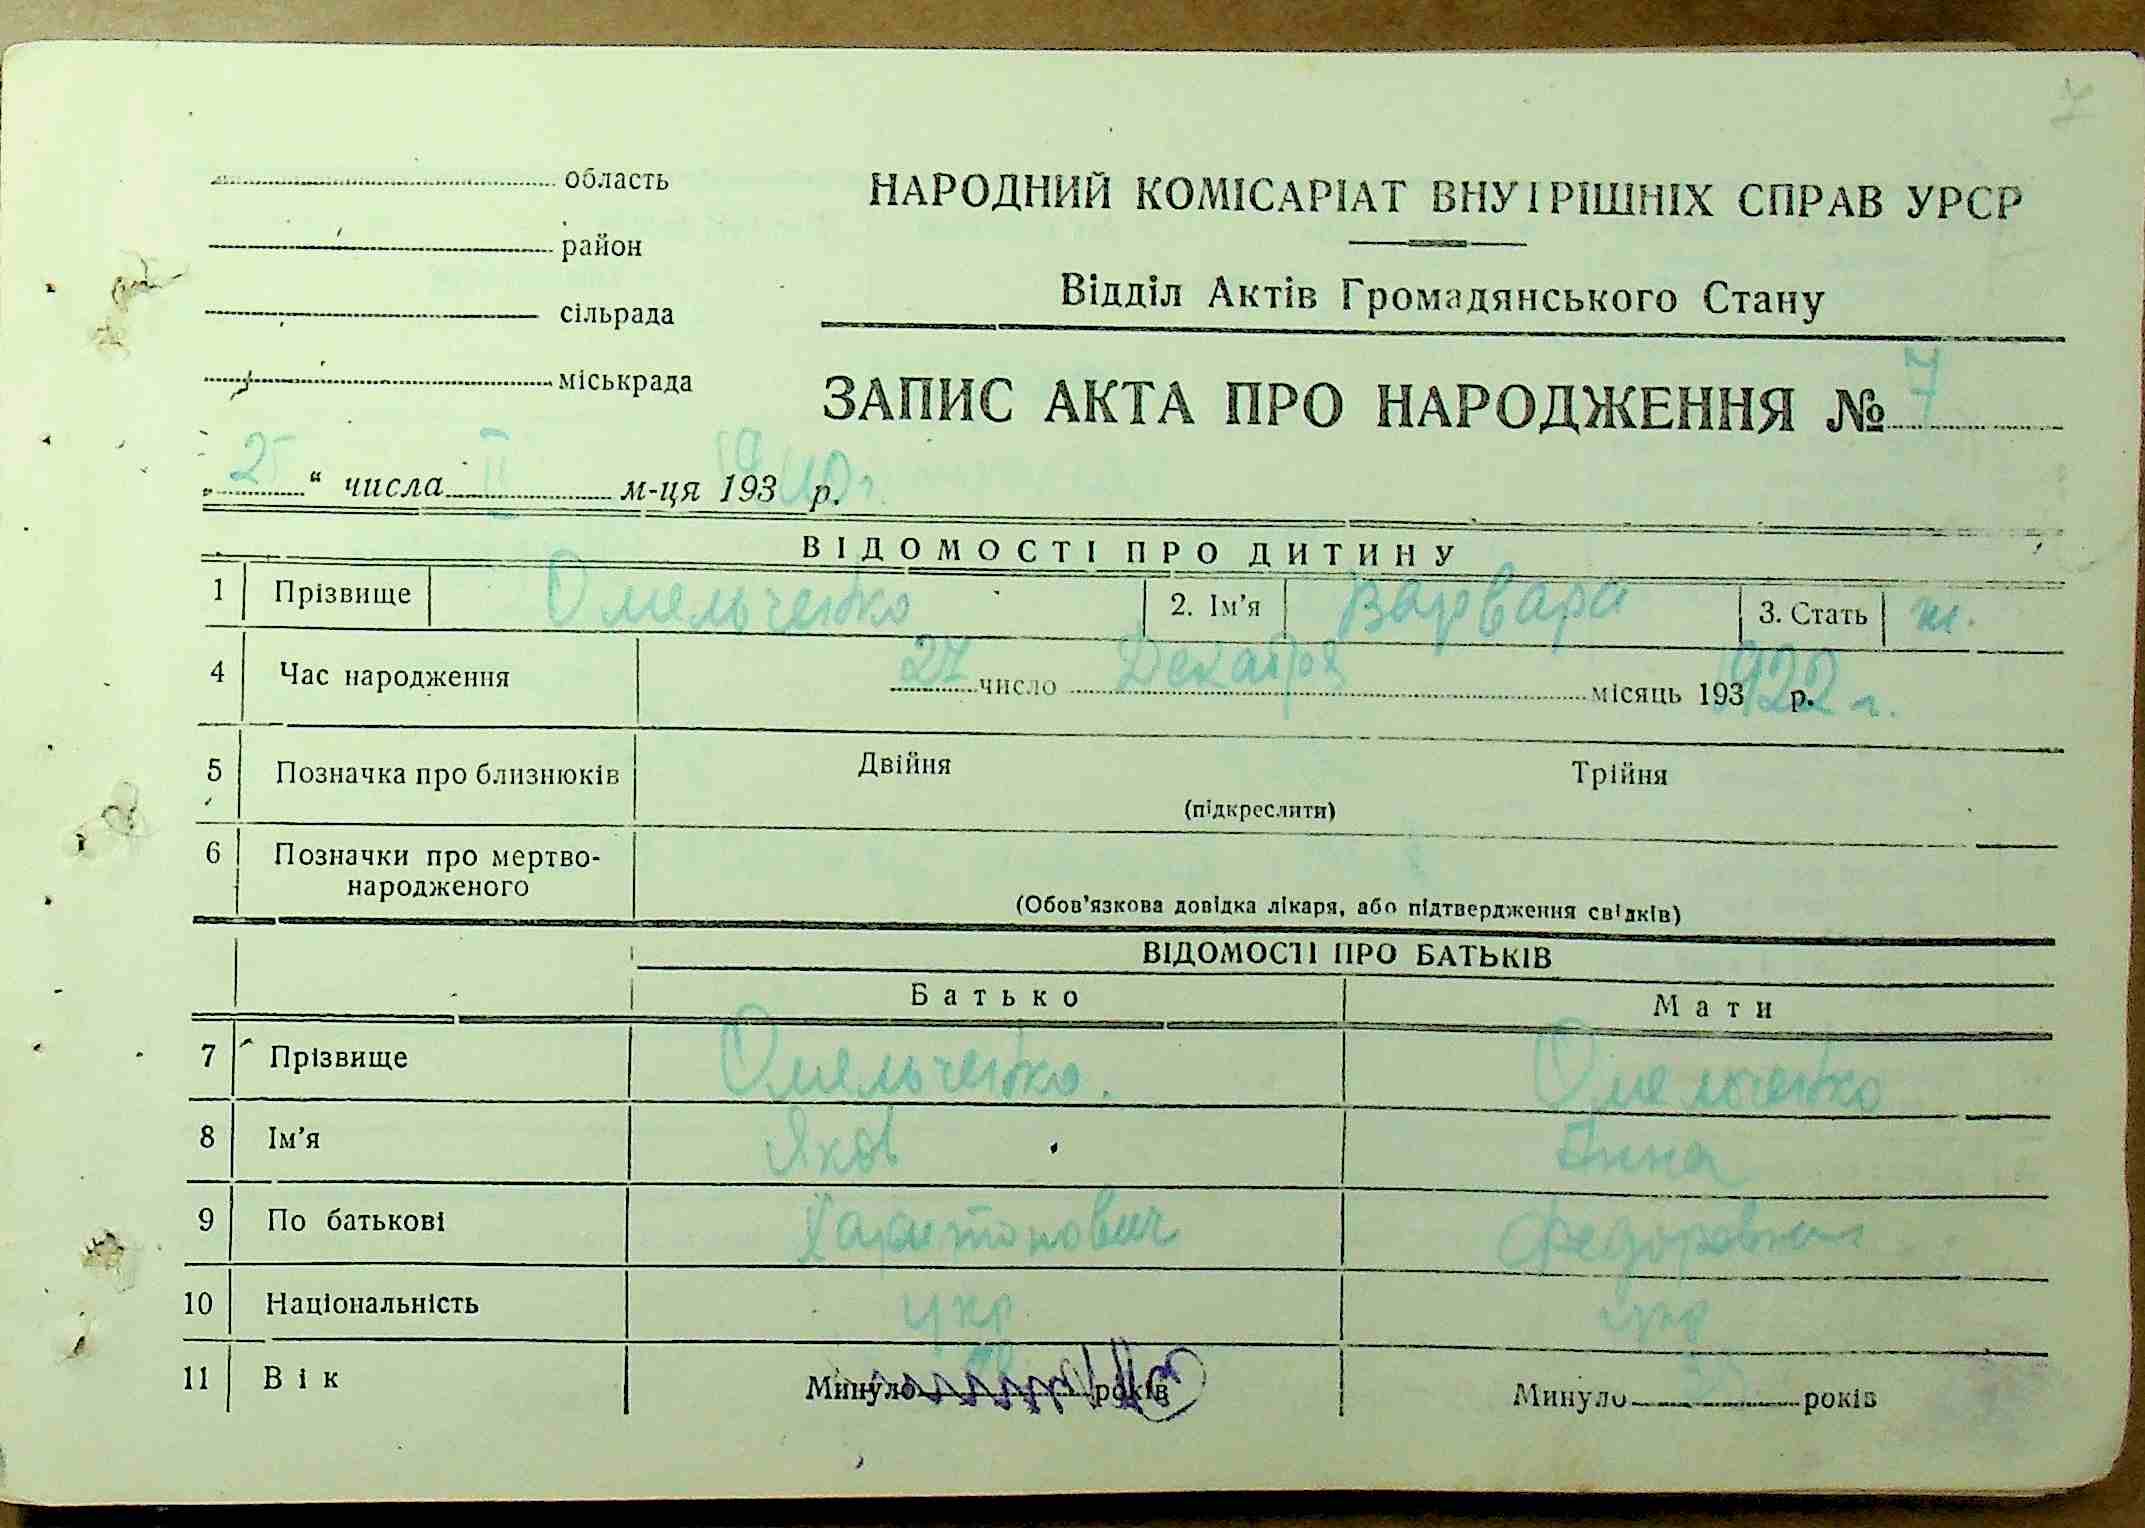 7
область
район
сільрада
міськрада
НАРОДНИЙ КОМІСАРІАТ ВНУТРІШНІХ СПРАВ УРСР
Відділ Актів Громадянського Стану
ЗАПИС АКТА ПРО НАРОДЖЕННЯ № 7
„ 25 “ числа II м-ця 193 1940 г. р.
ВІДОМОСТІ ПРО ДИТИНУ
1 Прізвище Омельченко 2. Ім'я Варвара 3. Стать ж.
4 Час народження 27 число Декабря місяць 193 1922 г. р.
5 Позначка про близнюків Двійня Трійня
(підкреслити)
6 Позначки про мертво-
народженого
(Обов'язкова довідка лікаря, або підтвердження свідків)
ВІДОМОСТІ ПРО БАТЬКІВ
Батько Мати
7 Прізвище Омельченко. Омельченко
8 Ім'я Яков Анна
9 По батькові Харитонович Федоровна
10 Національність укр укр
11 Вік Минуло років Минуло років